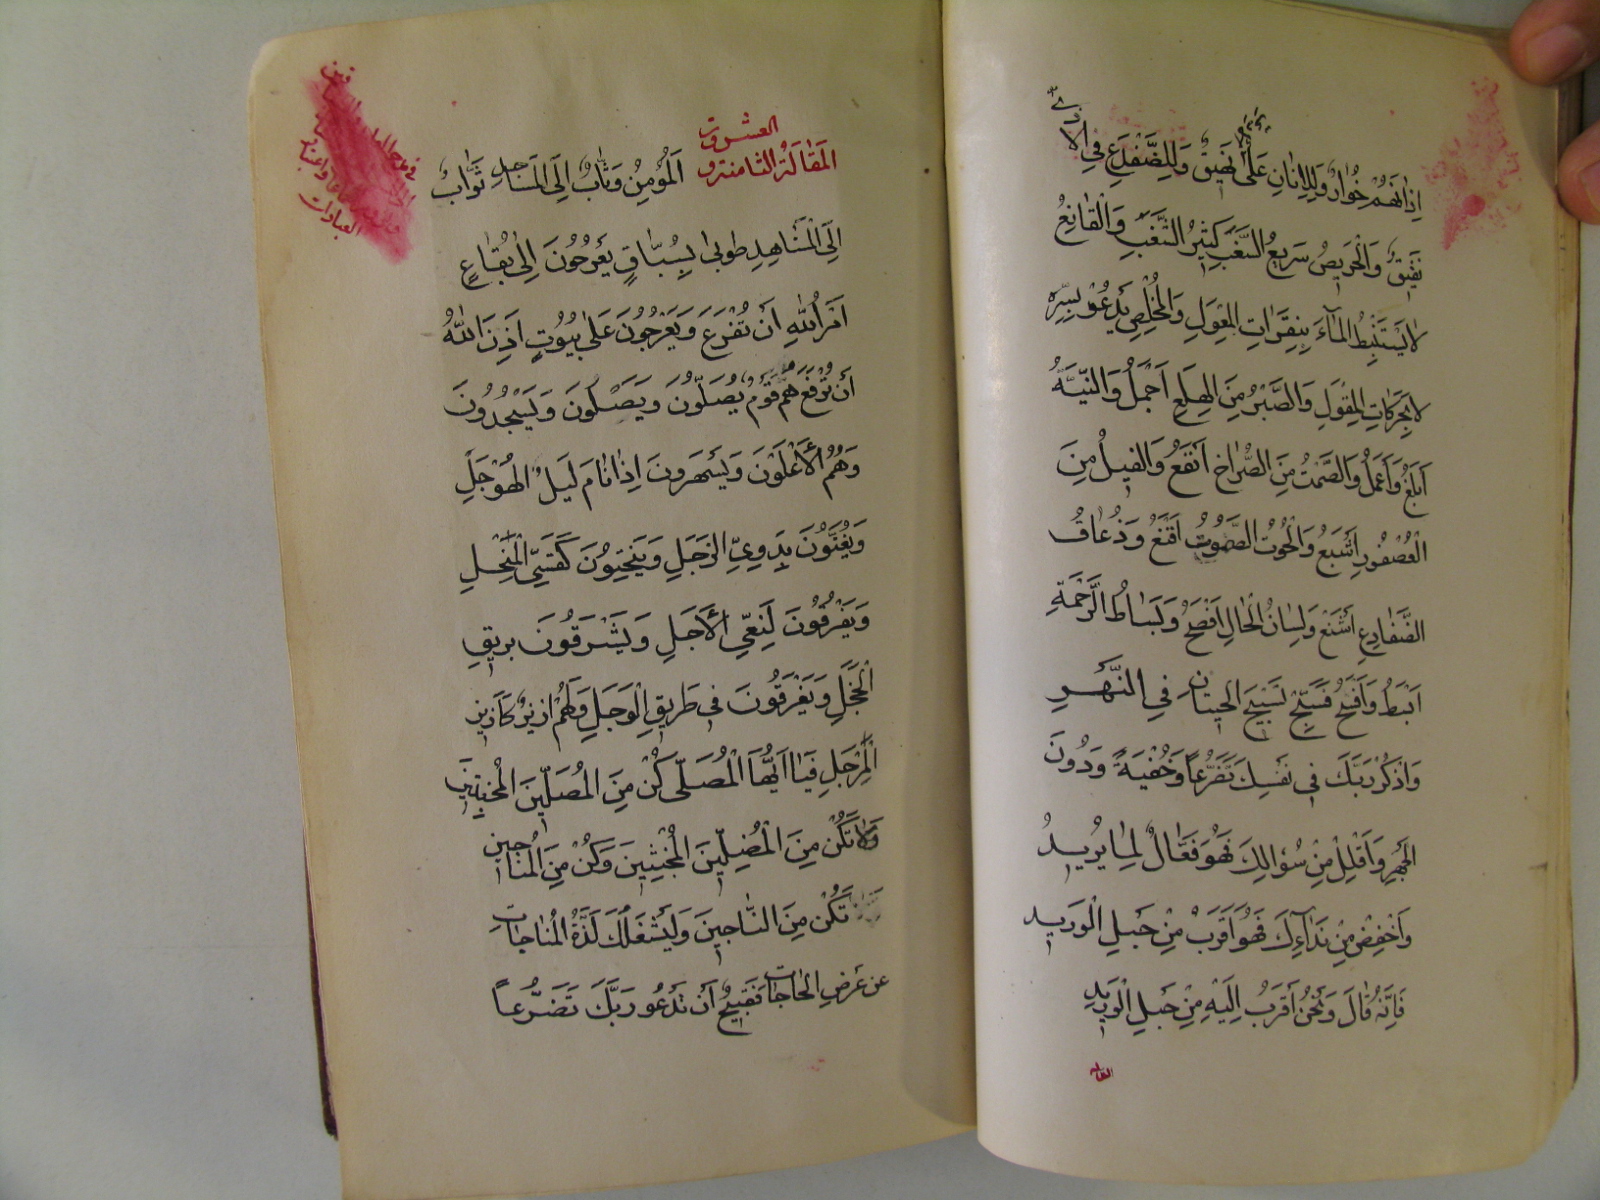 اِذَا نَهَمْ خُوَارٌ وَلِلْاِتَانِ عَلَى نَهِيقٌ وَلِلضَّفْدَعِ فِي الْاَ
نَقِيقٌ وَالْحَرِيصُ سَرِيعُ السَّغَبِ كَثِيرُ الشَّغَبِ وَالْقَانِعُ
لَا يَسْتَنْبِطُ الْمَآءَ بِنِقَرَاتِ الْمِعْوَلِ وَالْمُخْلِصُ يَدْعُوْ بِسِرِّهِ
لَا بِحَرَكَاتِ الْمِقْوَلِ وَالصَّبْرُ مِنَ الْهَلَعِ اَجْمَلُ وَالنِّيَّةُ
اَبْلَغُ وَاَعْمَلُ وَالصَّمْتُ مِنَ الصُّرَاخِ اَنْفَعُ وَالْفِيلُ مِنَ
الْعُصْفُورِ اَشْبَعُ وَالْحُوْتُ الصَّمُوْتُ اَقْنَعُ وَدُعَاقُ
الضَّفَادِعِ اَشْنَعُ وَلِسَانُ الْحَالِ اَفْصَحُ وَبِسَاطُ الرَّحْمَةِ
اَبْسَطُ وَاَفْسَحُ فَسَبِّحْ تَسْبِيحَ الْحِيتَانِ فِي النَّهَرِ
وَاذْكُرْ رَبَّكَ فِي نَفْسِكَ تَضَرُّعاً وَخُفْيَةً وَدُونَ
الْجَهْرِ وَاَقْلِلْ مِنْ سُؤَالِكَ فَهُوَ فَعَّالٌ لِمَا يُرِيدُ
وَاخْفِضْ مِنْ نِدَآءِكَ فَهُوَ اَقْرَبُ مِنْ حَبْلِ الْوَرِيدِ
فَاِنَّهُ قَالَ وَنَحْنُ اَقْرَبُ اِلَيْهِ مِنْ حَبْلِ الْوَرِيدِ
المقالة
الْمَقَالَةُ الثَّامِنَةُ وَ
العشرون
اَلْمُؤْمِنُ وَثَّابٌ اِلَى الْمَسَاجِدِ ثَوَّابٌ
اِلَى الْمَشَاهِدِ طُوبَى لِسُبَّاقٍ يَعْرُجُونَ اِلَى بِقَاعٍ
اَمَرَ اللّٰهُ اَنْ تُفْرَعَ وَيَعْرُجُونَ عَلَى بُيُوْتٍ اَذِنَ اللّٰهُ
اَنْ تُرْفَعَ هُمْ قَوْمٌ يُصَلُّونَ وَيَصِلُونَ وَيَسْجُدُونَ
وَهُمُ الْأَعْلَوْنَ وَيَسْهَرُونَ اِذَا نَامَ لَيْلُ الْهَوْجَلِ
وَيُغَنُّونَ بِدَوِيِّ الزَّجَلِ وَيَنْحَنُونَ كَقِسِيِّ
وَيَفْرُقُونَ لِنَعْيِ الْأَجَلِ وَيَشْرَقُونَ بِرِيقِ
الْخَجَلِ وَيَغْرَقُونَ فِي طَرِيقِ الْوَجَلِ وَلَهُمْ اَزِيزٌ كَاَزِيزِ
الْمِرْجَلِ فَيَا اَيُّهَا الْمُصَلِّى كُنْ مِنَ الْمُصَلِّينَ الْمُخْبِتِينَ
وَلَا تَكُنْ مِنَ الْمُضِلِّينَ الْمُخْبِثِينَ وَكُنْ مِنَ الْمُنَاجِينَ
تَكُنْ مِنَ النَّاجِينَ وَلْيَشْغَلْكَ لَذَّةُ الْمُنَاجَاتِ
عَنْ عَرْضِ الْحَاجَاتِ فَقَبِيحٌ اَنْ تَدْعُوَ رَبَّكَ تَضَرُّعاً
العبادات